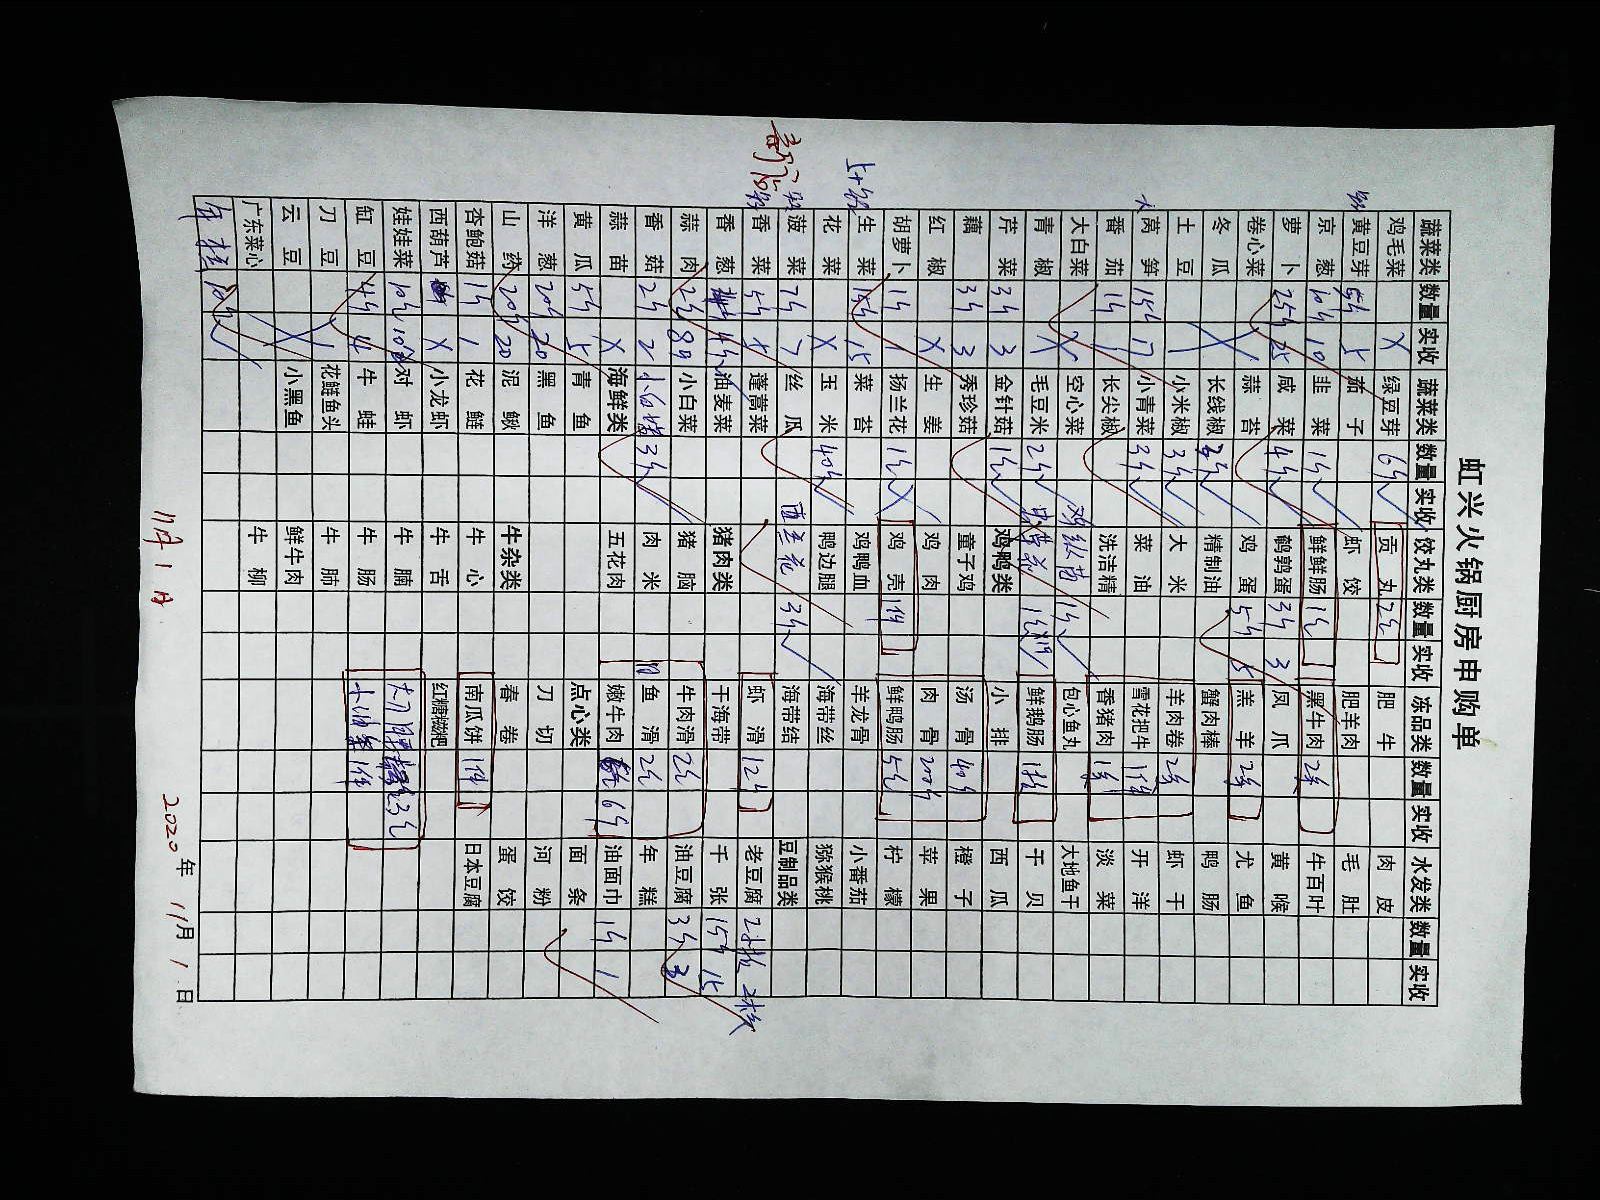 虹兴火锅厨房申购单
蔬菜类 数量 实收 蔬菜类 数量 实收 饺丸类 数量 实收 冻品类 数量 实收 水发类 数量 实收
鸡毛菜 X 绿豆芽 6斤 贡丸 2包 肥牛 肉皮
黄豆芽 5斤 5 茄子 虾饺 肥羊肉 毛肚
京葱 10斤 10 韭菜 1斤 鲜鲜肠 1包 黑牛肉 2条 牛百叶
萝卜 25斤 25 咸菜 4斤 鹌鹑蛋 3斤 3 凤爪 黄喉
卷心菜 蒜苔 鸡蛋 5斤 5 羔羊 2条 尤鱼
冬瓜 长线椒 3斤 精制油 蟹肉棒 鸭肠
土豆 小米椒 3斤 大米 羊肉卷 2条 虾干
莴笋 15斤 17 小青菜 3斤 菜油 雪花把牛 1条 开洋
番茄 1斤 1 长尖椒 洗洁精 香猪肉 1条 淡菜
大白菜 空心菜 鸡纵菌 1斤 包心鱼丸 大地鱼干
青椒 X 毛豆米 2斤 1斤 鲜鹅肠 干贝
芹菜 3斤 3 金针菇 1斤 鸡鸭类 小排 西瓜
藕 3斤 3 秀珍菇 童子鸡 汤骨 40斤 橙子
红椒 X 生姜 鸡肉 肉骨 200斤 苹果
胡萝卜 1斤 1 扬兰花 1斤 鸡壳 1件 鲜鸭肠 5包 柠檬
生菜 15斤 15 菜苔 鸡鸭血 羊龙骨 小番茄
花菜 X 玉米 40斤 鸭边腿 海带丝 猕猴桃
菠菜 7斤 7 丝瓜 西兰花 3斤 海带结 豆制品类
香菜 5斤 5 蓬蒿菜 虾滑 12斤 老豆腐 2板 2板
香葱 4斤 油麦菜 猪肉类 干海带 千张 15斤 15
蒜肉 2斤 小白菜 猪脑 牛肉滑 2包 油豆腐 3斤 3
香菇 2斤 2 3斤 肉米 鱼滑 2包 年糕
蒜苗 X 海鲜类 五花肉 嫩牛肉 6斤 油面巾 1斤 1
黄瓜 5斤 5 青鱼 点心类 面条
洋葱 20斤 20 黑鱼 刀切 河粉
山药 20斤 20 泥鳅 牛杂类 春卷 蛋饺
杏鲍菇 1斤 1 花鲢 牛心 南瓜饼 1件 日本豆腐
西葫芦 X 小龙虾 牛舌 红糖糍粑
娃娃菜 10斤 对虾 牛腩
缸豆 4斤 4 牛蛙 牛肠
刀豆 花鲢鱼头 牛肺
云豆 小黑鱼 鲜牛肉
广东菜心 牛柳
11月1日
2020年11月1日